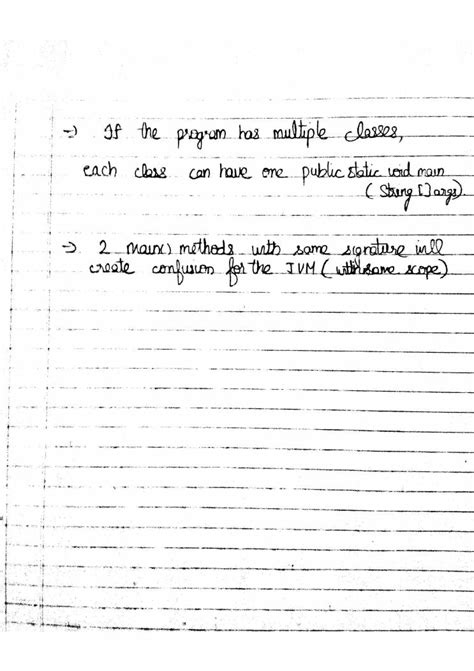 → If the program has multiple classes,
each class can have one public static void main
(String [] args).
→ 2 main() methods with same signature will
create confusion for the JVM (with same scope)